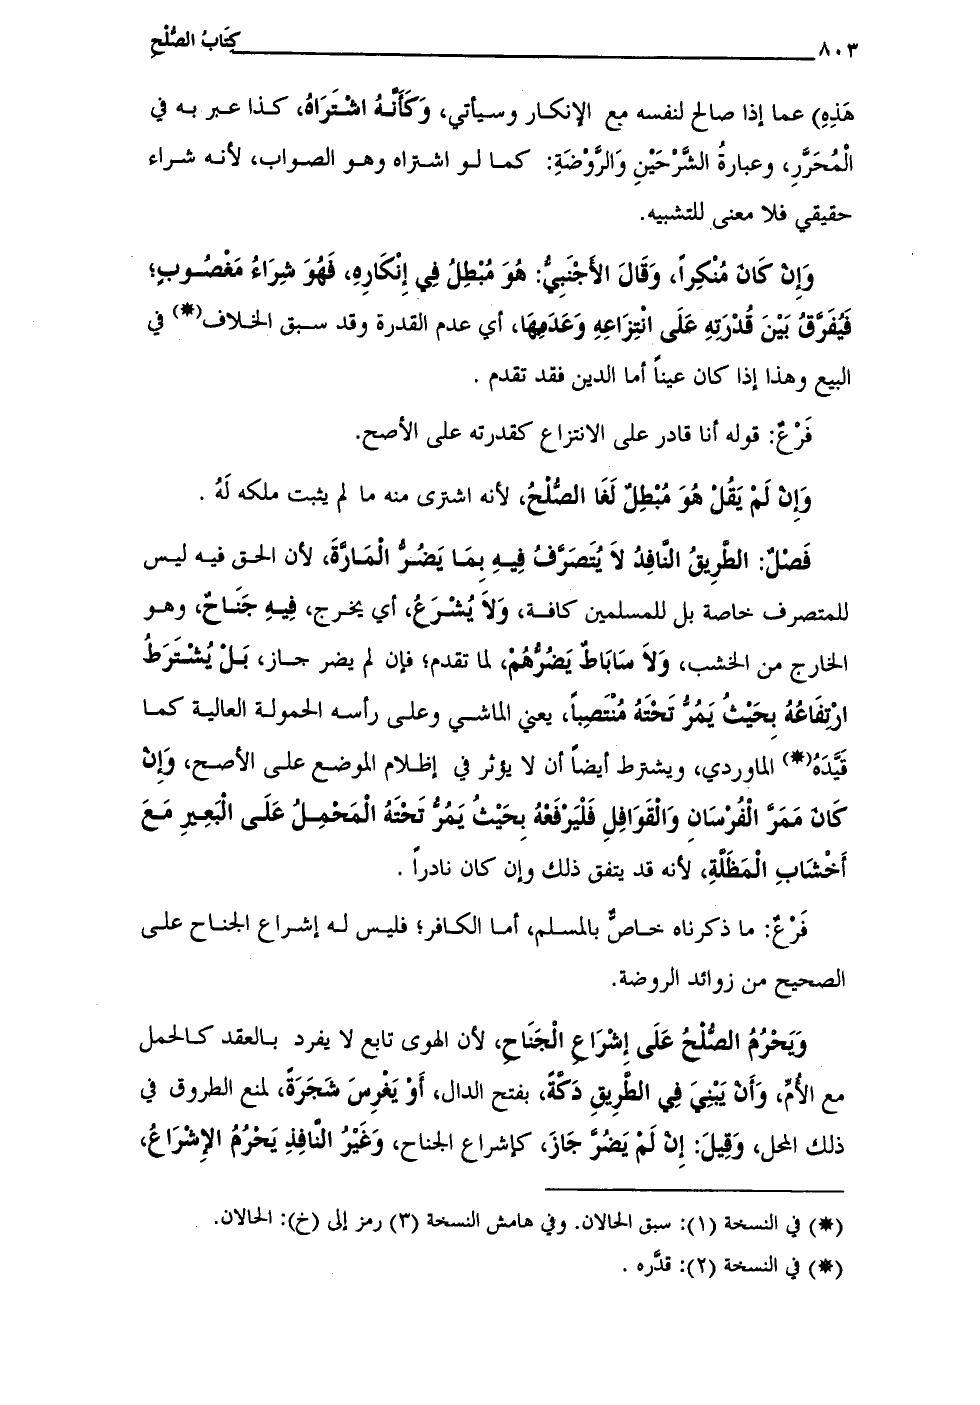 ٨٠٣ كِتَابُ الصُّلْحِ
هَذِهِ) عما إذا صالح لنفسه مع الإنكار وسيأتي، وَكَأَنَّهُ اشْتَرَاهُ، كذا عبر به في
الْمُحَرَّرِ، وعبارةُ الشَّرْحَيْنِ وَالرَّوْضَةِ: كما لو اشتراه وهو الصواب، لأنه شراء
حقيقي فلا معنى للتشبيه.
وَإِنْ كَانَ مُنْكِراً، وَقَالَ الأَجْنَبِيُّ: هُوَ مُبْطِلُ فِي إِنْكَارِهِ، فَهُوَ شِرَاءُ مَغْصُوبٍ؛
فَيُفَرَّقُ بَيْنَ قُدْرَتِهِ عَلَى انْتِزَاعِهِ وَعَدَمِهَا، أي عدم القدرة وقد سبق الخلاف(*) في
البيع وهذا إذا كان عيناً أما الدين فقد تقدم .
فَرْعٌ: قوله أنا قادر على الانتزاع كقدرته على الأصح.
وَإِنْ لَمْ يَقُلْ هُوَ مُبْطِلٌ لَغَا الصُّلْحُ، لأنه اشترى منه ما لم يثبت ملكه لَهُ .
فَصْلٌ: الطَّرِيقُ النَّافِذُ لاَ يُتَصَرَّفُ فِيهِ بِمَا يَضُرُّ الْمَارَّةَ، لأن الحق فيه ليس
للمتصرف خاصة بل للمسلمين كافة، وَلاَ يُشْرَعُ، أي يخرج، فِيهِ جَنَاحٌ، وهو
الخارج من الخشب، وَلاَ سَابَاطٌ يَضُرُّهُمْ، لما تقدم؛ فإن لم يضر جاز، بَلْ يُشْتَرَطُ
ارْتِفَاعُهُ بِحَيْثُ يَمُرُّ تَحْتَهُ مُنْتَصِباً، يعني الماشي وعلى رأسه الحمولة العالية كما
قَيَّدَهُ(*) الماوردي، ويشترط أيضاً أن لا يؤثر في إظلام الموضع على الأصح، وَإِنْ
كَانَ مَمَرَّ الْفُرْسَانِ وَالْقَوَافِلِ فَلْيَرْفَعْهُ بِحَيْثُ يَمُرُّ تَحْتَهُ الْمَحْمِلُ عَلَى الْبَعِيرِ مَعَ
أَخْشَابِ الْمَظَلَّةِ، لأنه قد يتفق ذلك وإن كان نادراً .
فَرْعٌ: ما ذكرناه خاصٌّ بالمسلم، أما الكافر؛ فليس له إشراع الجناح على
الصحيح من زوائد الروضة.
وَيَحْرُمُ الصُّلْحُ عَلَى إِشْرَاعِ الْجَنَاحِ، لأن الهوى تابع لا يفرد بالعقد كالحمل
مع الأُمِّ، وَأَنْ يَبْنِيَ فِي الطَّرِيقِ دَكَّةً، بفتح الدال، أَوْ يَغْرِسَ شَجَرَةً، لمنع الطروق في
ذلك المحل، وَقِيلَ: إِنْ لَمْ يَضُرَّ جَازَ، كإشراع الجناح، وَغَيْرُ النَّافِذِ يَحْرُمُ الإِشْرَاعُ،
(*) في النسخة (١): سبق الحالان. وفي هامش النسخة (٣) رمز إلى (خ): الحالان.
(*) في النسخة (٢): قدَّره .